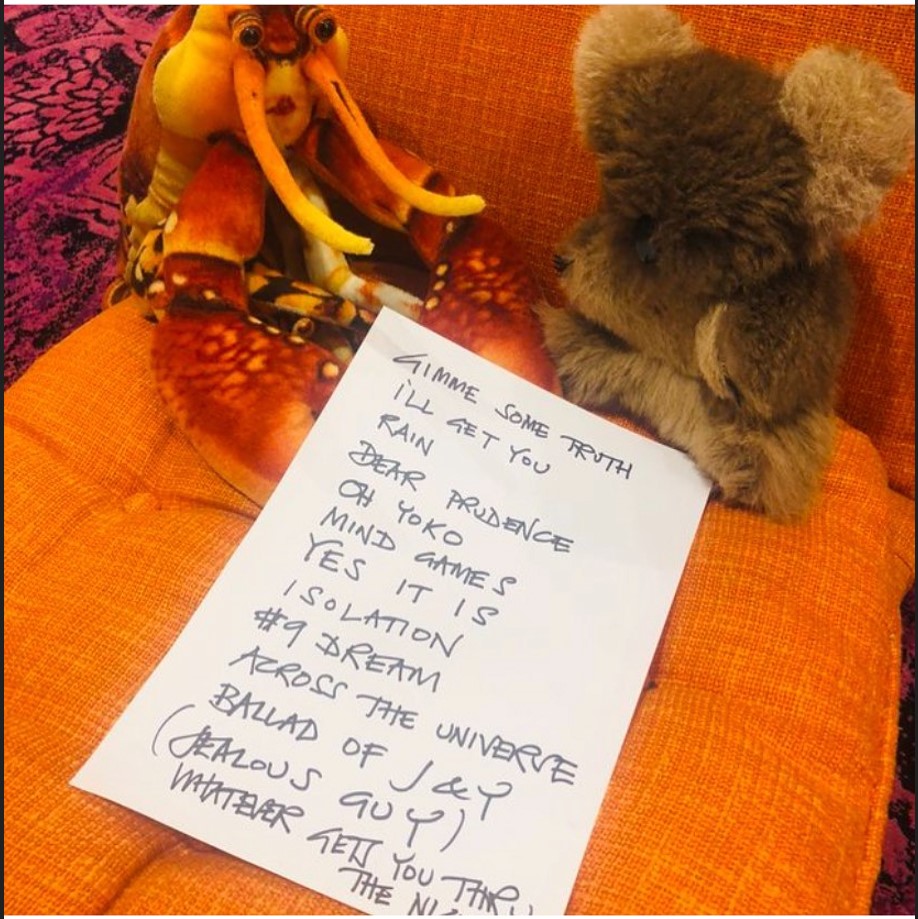 GIMME SOME TRUTH
I'LL GET YOU
RAIN
DEAR PRUDENCE
OH YOKO
MIND GAMES
YES IT IS
ISOLATION
#9 DREAM
ACROSS THE UNIVERSE
BALLAD OF J & Y
(JEALOUS GUY)
WHATEVER GETS YOU THRU
THE